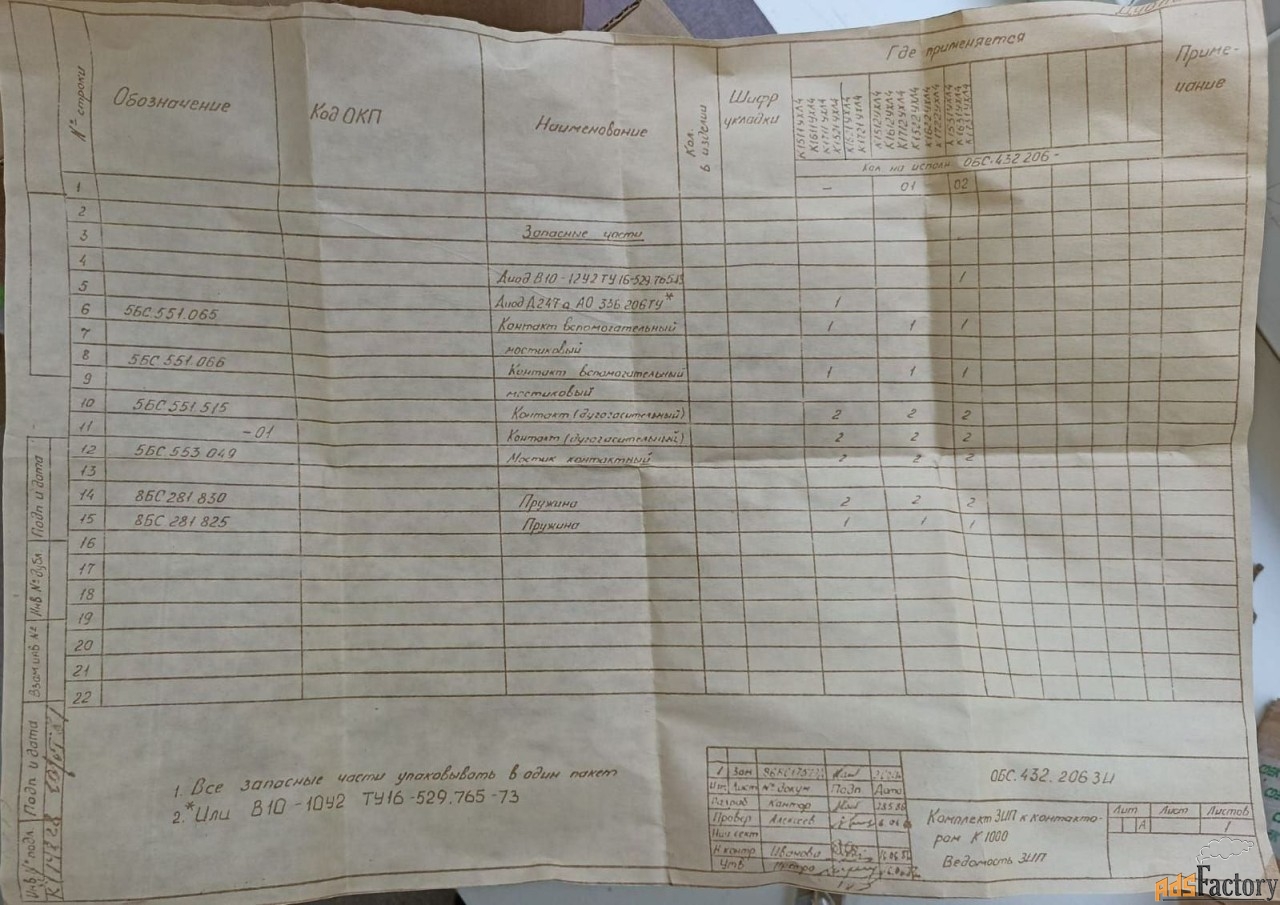 № строки
Обозначение
Код ОКП
Наименование
Кол. в изделии
Шифр укладки
Где применяется
Приме-
чание
К1511УХЛ4
К1611УХЛ4
К1711УХЛ4
К1521УХЛ4
К1621УХЛ4
К1721УХЛ4
К1512УХЛ4
К1612УХЛ4
К1712УХЛ4
К1522УХЛ4
К1622УХЛ4
К1722УХЛ4
К1531УХЛ4
К1631УХЛ4
К1731УХЛ4
Кол на исполн. ОБС.432 206 -
1 – 01 02
2
3 Запасные части
4
5 Диод В10-12У2 ТУ16-529.765 1
6 5БС.551.065 Диод Д247а АО 336 206ТУ* 1
7 Контакт вспомогательный 1 1 1
мостиковый
8 5БС 551.066
9 Контакт вспомогательный 1 1 1
мостиковый
10 5БС 551 515 Контакт (дугогасительный) 2 2 2
11 -01 Контакт (дугогасительный) 2 2 2
12 5БС 553 049 Мостик контактный 2 2 2
13
14 8БС 281 830 Пружина 2 2 2
15 8БС 281 825 Пружина 1 1 1
16
17
18
19
20
21
22
1. Все запасные части упаковывать в один пакет
2.*Или В10-10У2 ТУ16-529.765-73
Инв № подл. Подп и дата Взам инв № Инв № дубл. Подп и дата
1 Зам
Изм Лист № докум Подп Дата
Разраб Кантор
Провер Алексеев
Нач сект
Н.контр Иванова
Утв
ОБС.432.206 ЗИ
Комплект ЗИП к контакто-
рам К 1000
Ведомость ЗИП
Лит Лист Листов
А 1
AdsFactory